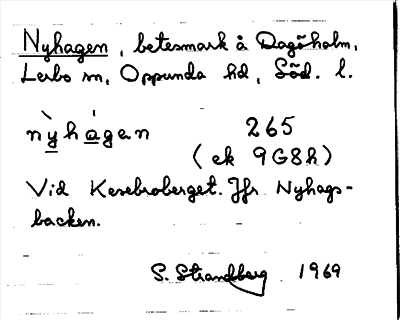 Nyhagen, betesmark å Dagöholm,
Lerbo sn, Oppunda hd, Söd. l.
nỳhágan 265
(ek 9G8h)
Vid Kesebroberget. Jfr Nyhags-
backen.
S. Strandberg 1969